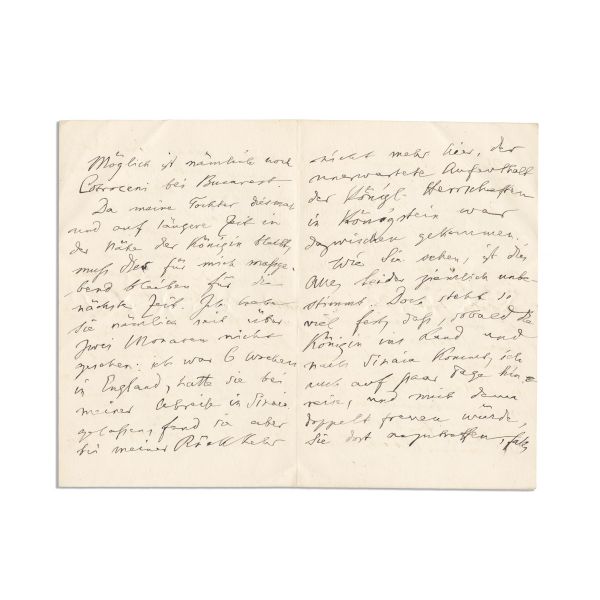 Möglich ist nämlich noch
Cotroceni bei Bucarest.
Da meine Tochter diesmal
und auf längere Zeit in
der Nähe der Königin bleibt,
muß dies für mich maßge-
bend bleiben für die
nächste Zeit. Ich habe
Sie nämlich seit über
zwei Monaten nicht
gesehen: ich war 6 Wochen
in England, hatte sie bei
meiner Abreise in Sinaia
gelassen, fand sie aber
bei meiner Rückkehr
nicht mehr hier, der
unerwartete Aufenthalt
der Königl. Herrschaften
in Königstein war
dazwischen gekommen.
Wie Sie sehen, ist dies
Alles leider ziemlich unbe-
stimmt. Doch steht so
viel fest, daß, sobald die
Königin ins Land und
nach Sinaia kommt, ich
auch auf paar Tage hin
reise, und mich dann
doppelt freuen würde,
Sie dort anzutreffen, falls